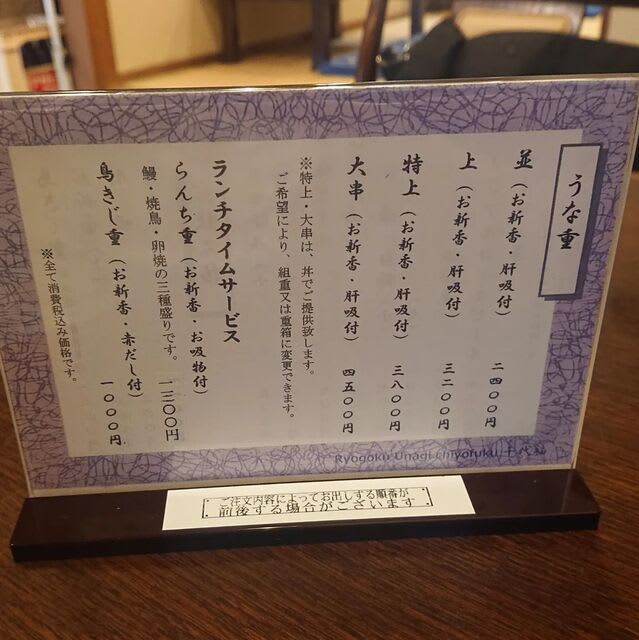 うな重
並（お新香・肝吸付） 二四〇〇円
上（お新香・肝吸付） 三二〇〇円
特上（お新香・肝吸付） 三八〇〇円
大串（お新香・肝吸付） 四五〇〇円
※特上・大串は、丼でご提供致します。
ご希望により、組重又は重箱に変更できます。
ランチタイムサービス
らんち重（お新香・お吸物付）
鰻・焼鳥・卵焼の三種盛りです。 一三〇〇円
鳥きじ重（お新香・赤だし付） 一〇〇〇円
※全て消費税込み価格です。
Ryogoku Unagi Chiyofuku 千代福
ご注文内容によってお出しする順番が
前後する場合がございます